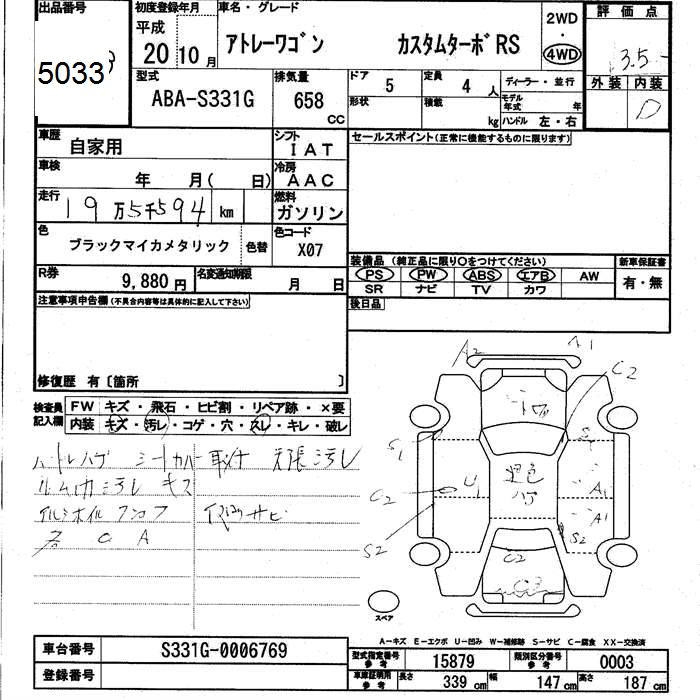 出品番号
5033
初度登録年月
平成
20 10月
車名・グレード
アトレーワゴン カスタムターボRS
2WD
・
4WD
評価点
3.5
外装 内装
D
型式
ABA-S331G
排気量
658
CC
ドア 5
定員 4 人
形状
積載 kg
ディーラー・並行
モデル年式 年
ハンドル 左・右
車歴 自家用
シフト
IAT
セールスポイント(正常に機能するものに限ります)
車検 年 月( 日)
冷房
AAC
走行 19万5千594km
燃料
ガソリン
色
ブラックマイカメタリック
色替
色コード
X07
装備品(純正品に限り○をつけてください)
PS PW ABS エアB AW
SR ナビ TV カワ
新車保証書
有・無
R券 9,880円
名変通知期限 月 日
後日品
注意事項申告欄(不具合内容等は具体的に記入して下さい)
修復歴 有〔箇所 〕
検査員
記入欄
FW キズ・飛石・ヒビ割・リペア跡・×要
内装 キズ・汚レ・コゲ・穴・スレ・キレ・破レ
シートカバー取付 天張汚レ
キズ
A2 A1
C2
S1
U1
C2
S2
退色
ハゲ
A1
A1
S2
C2
C3
スペア
A-キズ E-エクボ U-凹み W-補修跡 S-サビ C-腐食 XX-交換済
車台番号 S331G-0006769
登録番号
型式指定番号
参考
15879
類別区分番号
参考
0003
車庫証明用
参考
長さ 339cm 幅 147cm 高さ 187cm